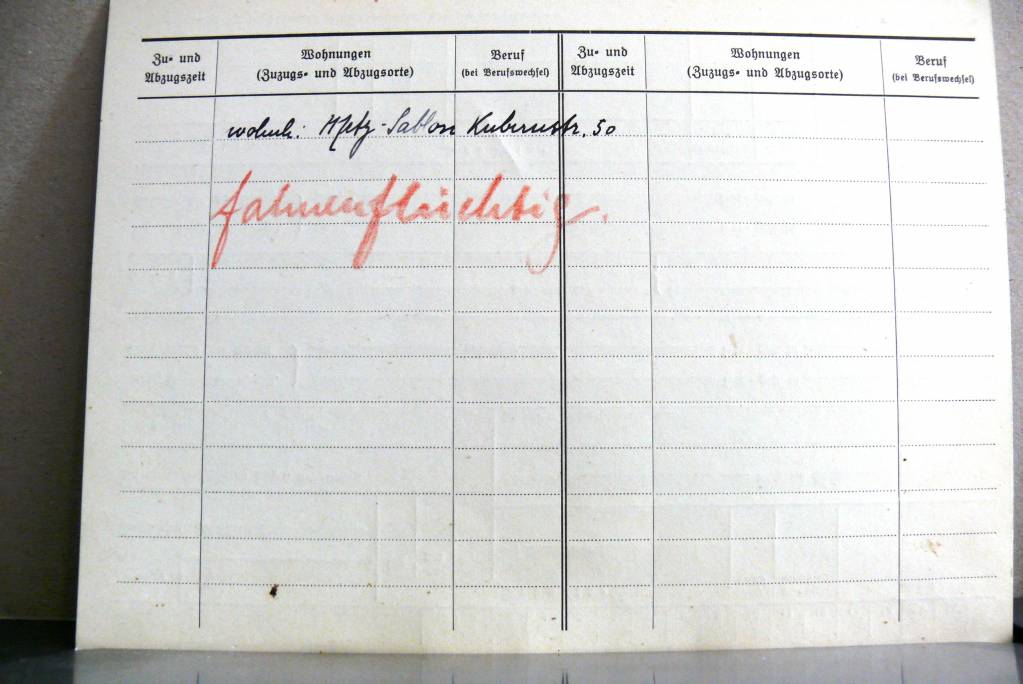 Zu- und Abzugszeit
Wohnungen
(Zuzugs- und Abzugsorte)
Beruf
(bei Berufswechsel)
Zu- und Abzugszeit
Wohnungen
(Zuzugs- und Abzugsorte)
Beruf
(bei Berufswechsel)
wohnh.: Metz-Sablon 50
fahnenflüchtig.